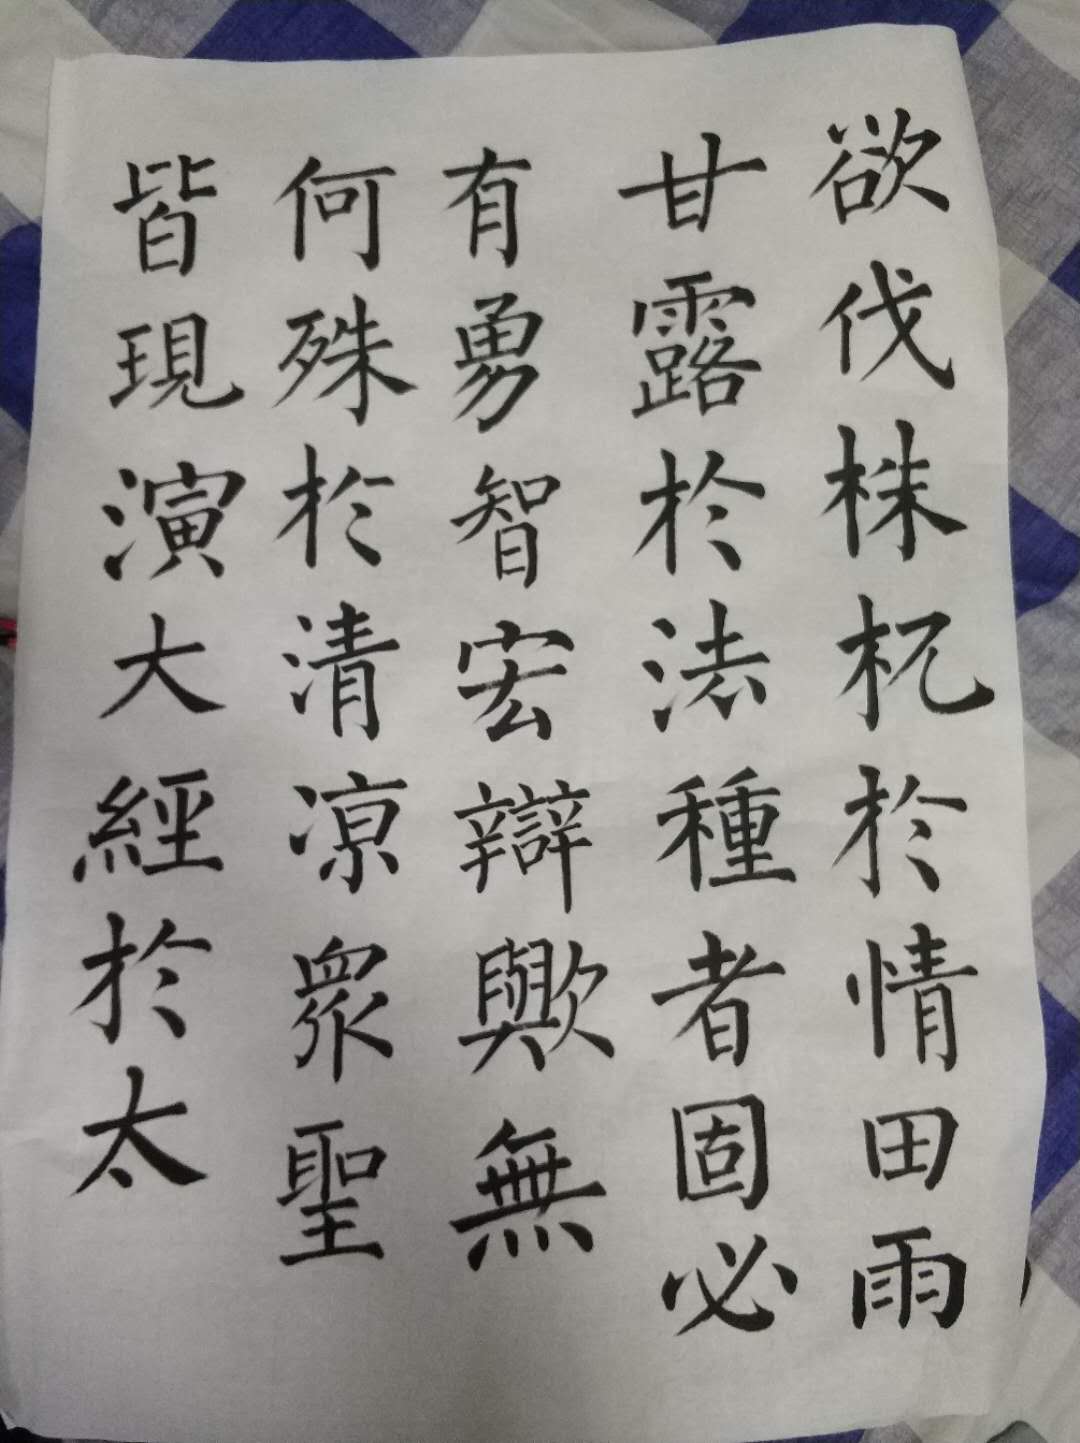 欲伐株杌於情田雨
甘露於法種者固必
有勇智宏辯歟無
何殊於清凉衆聖
皆現演大經於太